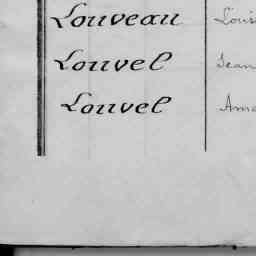 Louveau Louis
Louvel Jean
Louvel